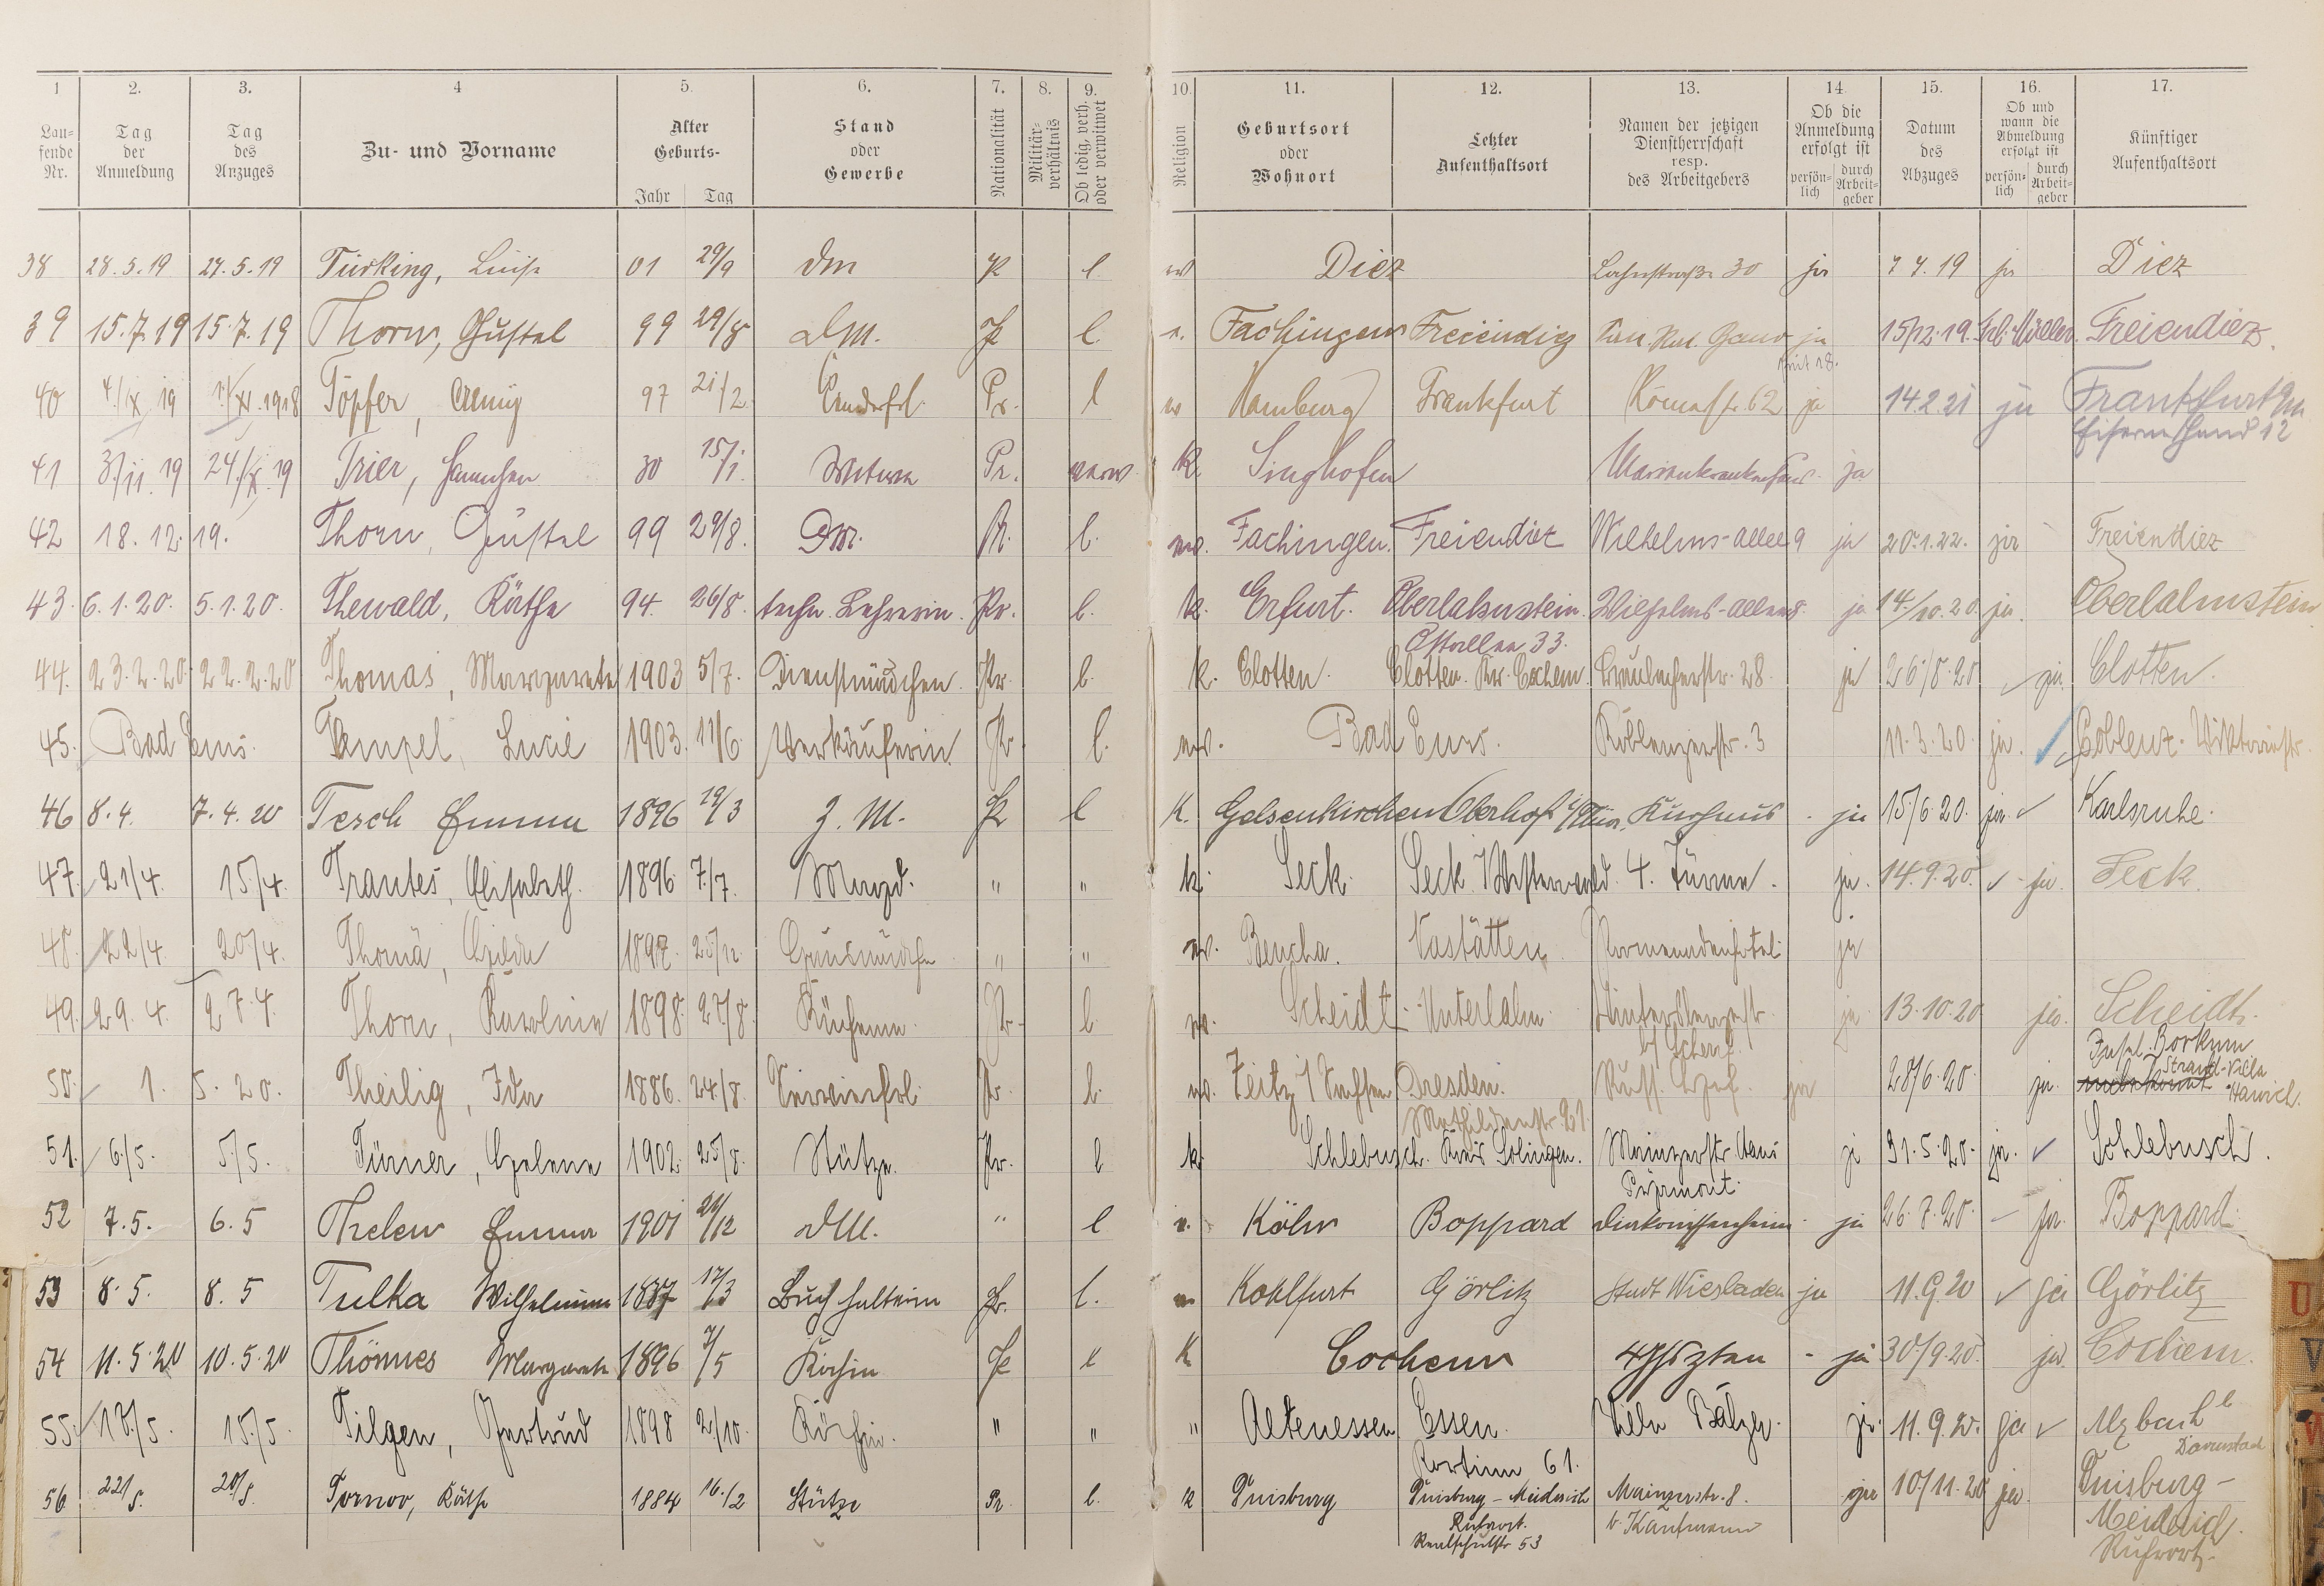 1 2. 3. 4 5. 6. 7. 8. 9. 10. 11. 12. 13. 14. 15. 16. 17.
Laufende Nr. Tag der Anmeldung Tag des Anzuges Zu- und Vorname Alter Geburts- Jahr Tag Stand oder Gewerbe Nationalität Militärverhältnis Ob ledig, verh. oder verwitwet Religion Geburtsort oder Wohnort Letzter Aufenthaltsort Namen der jetzigen Dienstherrschaft resp. des Arbeitgebers Ob die Anmeldung erfolgt ist persönlich durch Arbeitgeber Datum des Abzuges Ob und wann die Abmeldung erfolgt ist persönlich durch Arbeitgeber Künftiger Aufenthaltsort
38 28.5.19 27.5.19 Türking, Luise 01 29/9 Dm P l. Diez 30 ja 19 ja Diez
39 15.7.19 15.7.19 Thorn, Gustel 99 29/8 DM. P l. Fachingen Freiendiez ja 15/12.19. Freiendiez.
40 19 1918 Töpfer, 97 21/2 Pr. l Hamburg Frankfurt Römerstr. 62 ja 14.2.21 ja Frankfurt a/M
Eisernehand 12
41 3./11.19 19 Trier, Hannchen 30 15/1. Witwe Pr. verw. k. Singhofen Marienkrankenhaus ja
42 18.12.19. Thorn, Gustel 99 29/8. DM. Pr. l. ev. Fachingen. Freiendiez Wilhelms-allee 9 ja 20.1.22. ja Freiendiez
43. 6.1.20. 5.1.20. Thewald, Käthe 94. 26/8. techn. Lehrerin. Pr. l. k. Erfurt. Oberlahnstein. Wilhelms-allee 8. ja 14./10.20. ja. Oberlahnstein
Ostallee 33.
44. 23.2.20. 22.2.20 Thomas, Margarete 1903 5/7. Dienstmädchen. Pr. l. k. Clotten. Clotten. Kr. Cochem. Braubacherstr. 28. ja 26/8.20 ja. Clotten.
45. Bad Ems. Tempel, Lucie 1903. 11/6. Verkäuferin. Pr. l. ev. Bad Ems. Koblenzerstr. 3 11.3.20. ja. Coblenz. Viktoriastr.
46 8.4. 7.4.20 Tesch Emma 1896 19/3 Z. M. Pr l K. Gelsenkirchen Oberhof i/Thür. Kurhaus - ja 15/6.20. ja. Karlsruhe.
47. 21/4. 15./4. Trautes, Elisabeth. 1896 7./7. Magd. " " k. Seck. Seck. Westerwald. 4. Türme. ja. 14.9.20. - ja. Seck.
48. 22/4. 20/4. Thomä, Hilda 1897. Hausmädch. " " ev. Nastätten. ja
49. 29.4. 27.4. Thorn, Karoline 1898. 27/8. Pr. l. ev. Scheidt. Unterlahn. ja 13.10.20 ja. Scheidt.
b/
50. 1. 5. 20. Theilig, Ida 1886. 24/8. Pr. l. ev. Zeitz i/ Sachsen Dresden. Russ. Hof. ja 28/6.20. ja. Insel Borkum
Mathildenstr. 21. Strand-Villa
51. 6./5. 5./5. Türner, Helene 1902. 25/8. Stütze. Pr. l k. Schlebusch. Kreis Solingen. Mainzerstr. Haus ja 31.5.20. ja. Schlebusch.
Pyrmont.
52 7.5. 6.5 Thelen Emma 1901 /12 DM. " l. Köln Boppard Diakonissenheim - ja 26.7.20. - ja. Boppard
53 8.5. 8.5 Tulka Wilhelmine 1887 17/3 Buchhalterin Pr. l. Kohlfurt Görlitz Stadt Wiesbaden ja 11.9.20 ja Görlitz
54 11.5.20 10.5.20 Thönnes Margarete 1896 /5 Köchin Pr l K Cochem - ja 30/9.20. ja. Cochem.
55. 18./5. 15./5. Tilgen, Gertrud 1898 2/10. Köchin. " " " Altenessen Essen. Villa Balzer. ja. 11.9.20. ja
61. Darmstadt
56 22/5. 20/5. Tornow, Käthe 1884 16./2 Stütze Pr. l. k Duisburg Duisburg-Meiderich Mainzerstr. 8. ja 10/11.20 ja. Duisburg-
Ruhrort. b. Kaufmann Meiderich.
Realschulstr 53 Ruhrort.